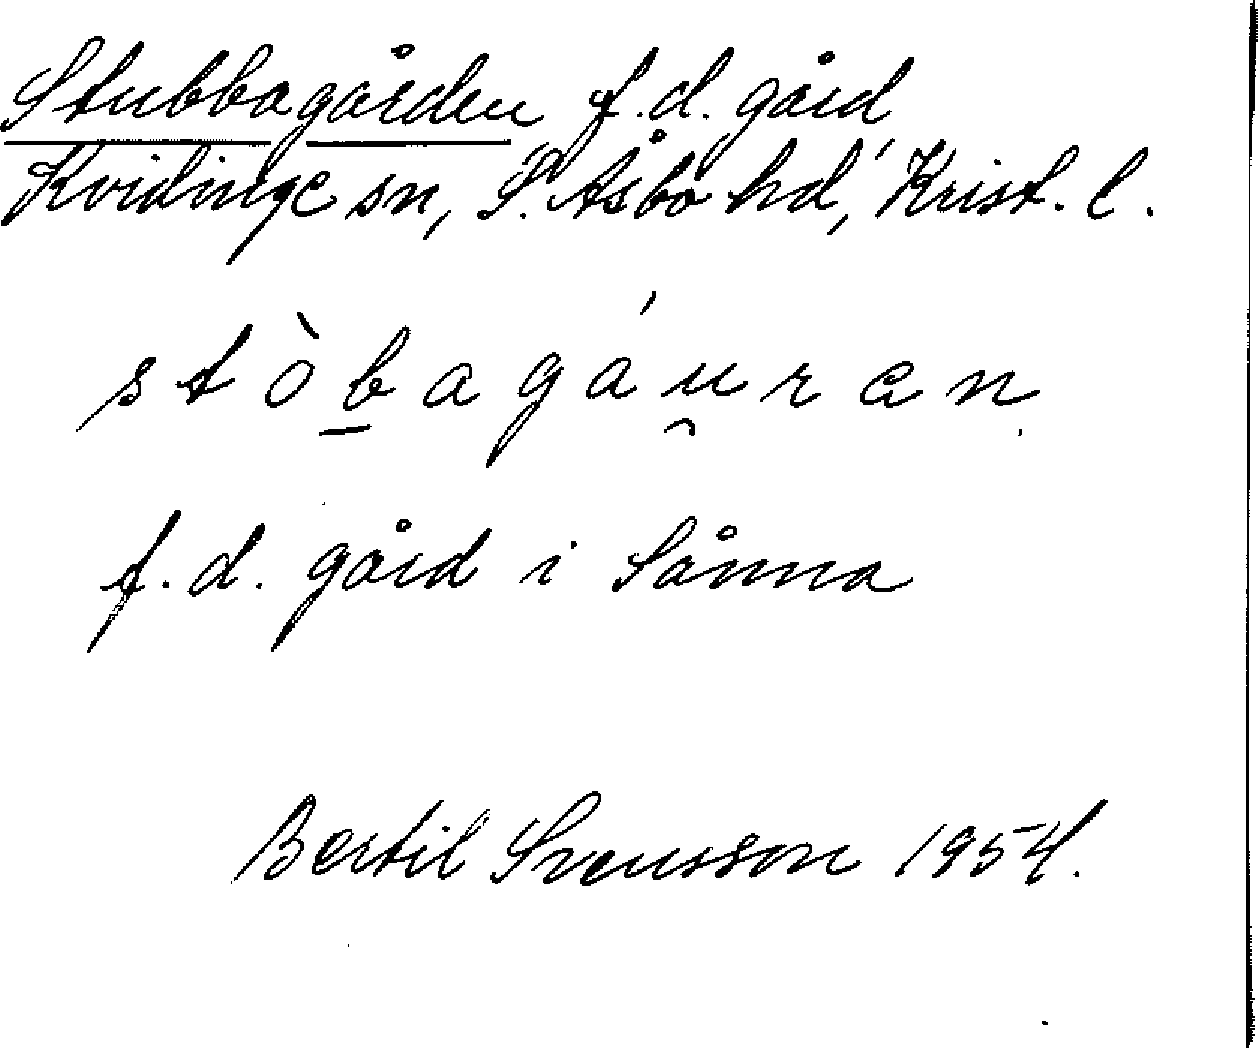 Stubbagården f.d. gård
Kvidinge sn, S. Åsbo hd, Krist. l.
stòb̲agáu̯ran
f.d. gård i Sånna
Bertil Svensson 1954.